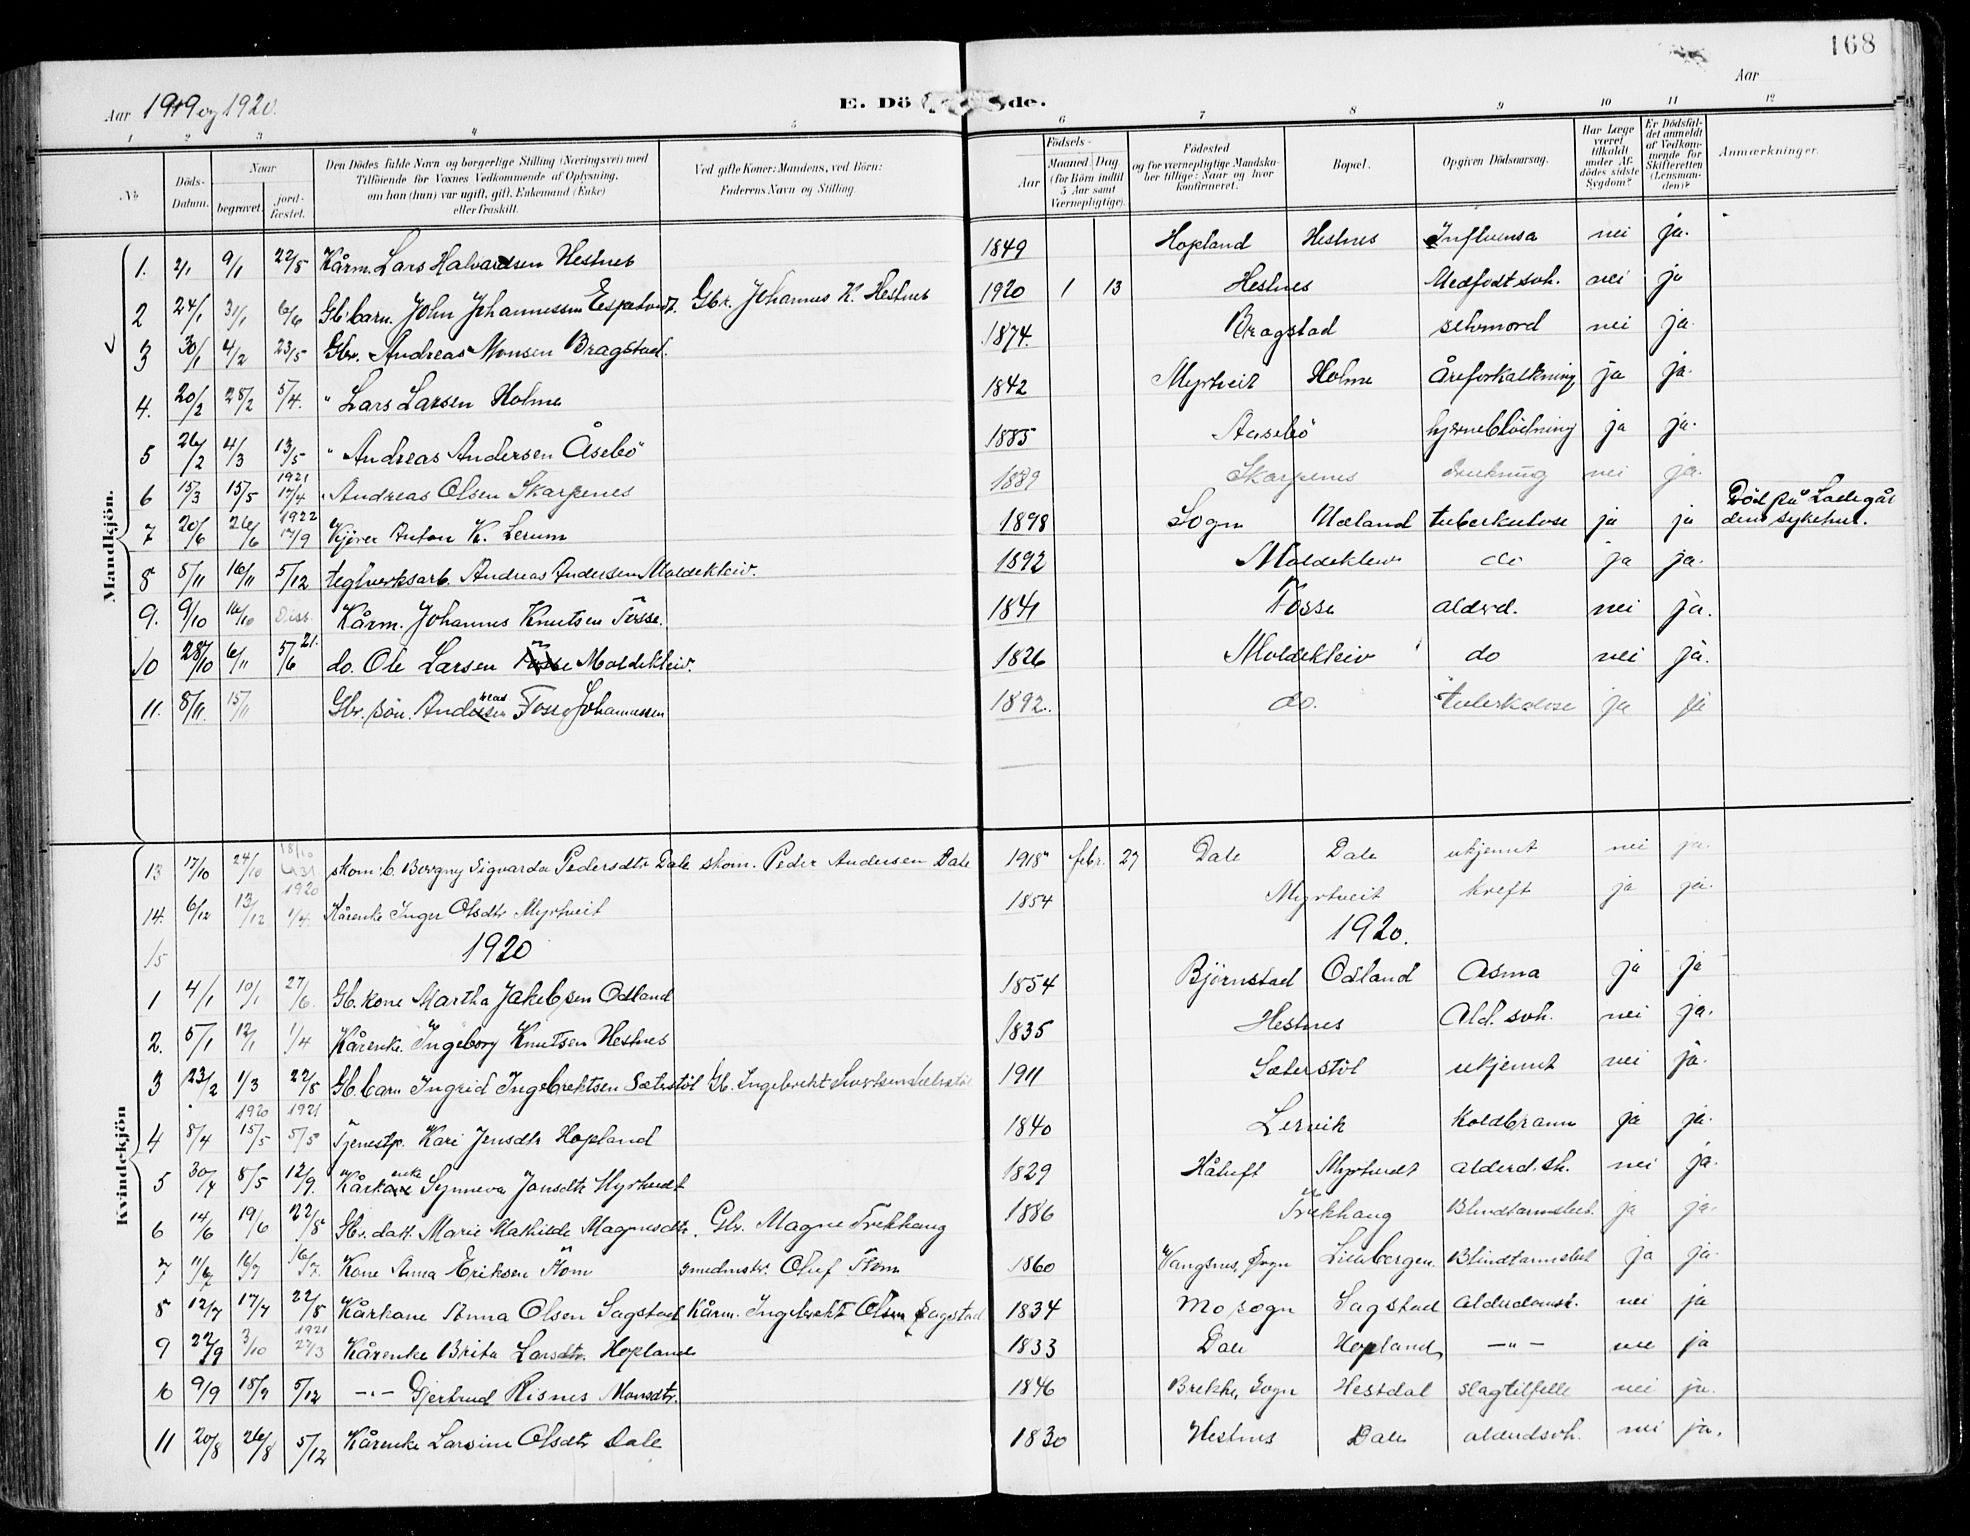 168
Aar 1919 og 1920.
E. Dö de.
Aar
1 2 3 4 5 6 7 8 9 10 11 12
No.
Döds-Datum.
Naar
begravet.
jord-fæstet.
Den Dödes fulde Navn og borgerlige Stilling (Næringsvei) med
Tilföiende for Voxnes Vedkommende af Oplysning,
om han (hun) var ugift, gift, Enkemand (Enke)
eller fraskilt.
Ved gifte Koner: Mandens, ved Börn:
Faderens Navn og Stilling.
Födsels-
Aar
Maaned Dag
(for Börn indtil
5 Aar samt
Værnepligtige).
Födested
og for værnepligtige Mandska-
ber tillige: Naar og hvor
konfirmeret.
Bopæl.
Opgiven Dödsaarsag.
Har Læge
været
tilkaldt
under Af-
dødes sidste
Sygdom?
Er Dödsfal-
det anmeldt
af Vedkom-
mende for
Skifteretten
(Lensman-
den)?
Anmærkninger.
Mandkjön.
1. 2/1 9/1 22/5 Kårm. Lars Halvardsen Hestnes 1849 Hopland Hestnes Influensa nei ja.
2 24/1 31/1 6/6 Gb. barn. John Johannessen Gbr. Johannes K. Hestnes 1920 1 13 Hestnes Medfödt svh. nei ja
3 30/1 4/2 23/5 Gbr. Andreas Monsen Bragstad. 1874. Bragstad selvmord nei ja.
4. 20/2 28/2 5/4. " Lars Larsen Holme 1842 Myrtveit Holme Åreforkalkning ja ja.
5 26/2 4/3 13/5 " Andreas Andersen Åsebö 1885 Aasebö hjerneblödning ja ja.
6 15/3 15/5 1921 17/4 " Andreas Olsen Skarpenes 1889 Skarpenes drukning nei ja.
7 20/6 26/6 1922 17/9 Kjörer Anton K. Lerum 1898 Sogn tuberkulose ja ja Död på Ladegår
dens sykehus.
8 8/11 16/11 5/12 teglverksarb. Andreas Andersen Moldekleiv. 1892 Moldekleiv do ja ja.
9. 9/10 16/10 Diss. Kårm. Johannes Knutsen Fosse. 1841 Fosse alderd. nei ja.
10 28/10 6/11 5/6 21. do. Ole Larsen Moldekleiv. 1826 Moldekleiv do nei ja.
11. 8/11. 15/11 Gbr. sön. Andreas Fosse Johannessen 1892. do. tuberkulose ja ja
Kvindekjön
13 17/10 24/10 18/10 1931 skom. b. Borgny Sigvarda Pedersdtr Dale skom. Peder Andersen Dale 1918 febr. 27 Dale Dale ukjennt nei ja.
14. 6/12 13/12 1920 1/4. Kårenke Inger Olsdtr Myrtveit 1854 Myrtveit kreft ja ja.
15 1920 1920.
1 4/1 10/1 27/6. Gb. kone Martha Jakobsen Odland 1854 Björnstad Odland Asma ja ja
2. 5/1 12/1 1/4 Kårenke. Ingeborg Knutsen Hestnes 1835 Hestnes Ald. svh. nei ja.
3 23/2 1/3 22/8 Gb. barn Ingrid Ingebrektsen Sæterstöl Gb. Ingebrekt 1911 Sæterstöl ukjennt nei ja.
4 8/4 1920 15/5 1921 5/5 Tjenestp. Kari Jensdtr Hopland 1840 Lervik Koldbrann ja ja.
5 30/4 8/5 12/9. Kårkone enke Synneva Jonsdtr Myrtvedt 1829 Håtuft Myrtvedt alderd. sh. nei ja.
6 14/6 19/6 22/8 Gbr. datt. Marie Mathilde Magnusdtr. Gbr. Magne Trekhaug 1886 Trekhaug Blindtarmsbet. ja ja.
7 11/6/7 16/7 16/7. Kone Anna Eriksen Flom smedmstr. Oluf Flom 1860 Vangsnes, Sogn Lillebergen. Blindtarmsbet ja ja.
8 12/7 17/7 22/8 Kårkone Anna Olsen Sagstad Kårm. Ingebrekt Olsen Sagstad 1834 Mo sogn Sagstad Alderdomsh. nei ja
9 22/9 3/10 1921 27/3 Kårenke Brita Larsdtr. Hopland 1833 Dale Hopland –"– nei ja
10 9/9 18/9 5/12 –"– Gjertrud Risnes Monsdtr. 1846 Brekke, Sogn Hestdal slagtilfelle nei ja.
11 20/8 26/8 5/12 Kårenke Larsine Olsdtr Dale 1830 Hestnes Dale alderdsvh. nei ja.